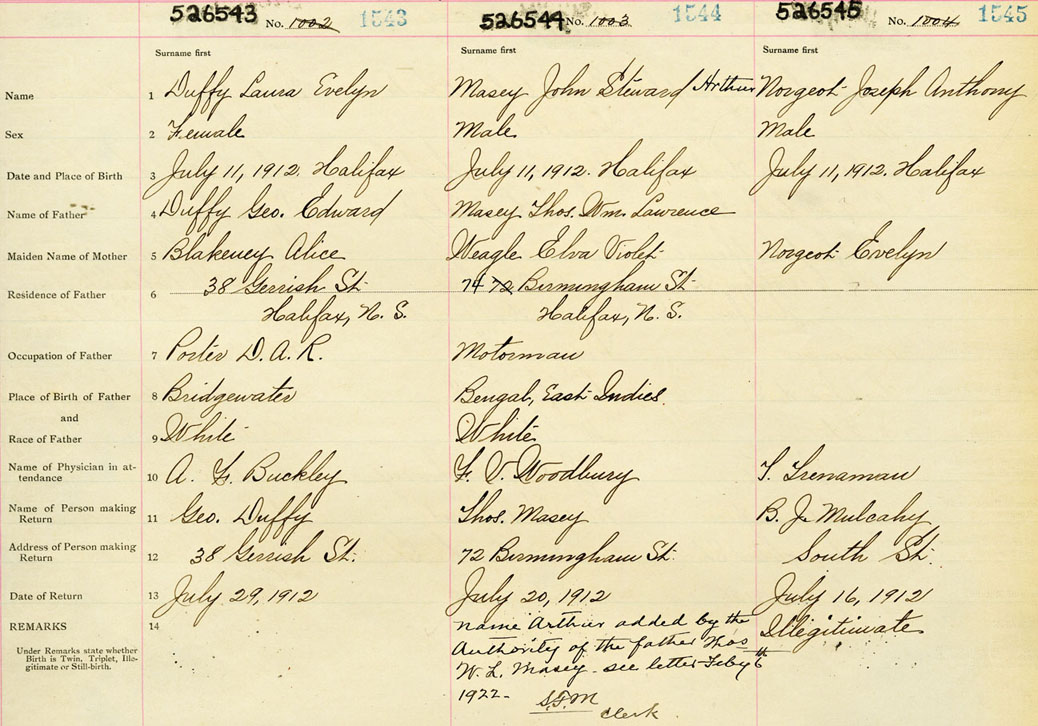 526543 No. 1002 1543 526544 No. 1003 1544 526545 No. 1004 1545
Surname first Surname first Surname first
Name 1 Duffy Laura Evelyn Masey John Steward Arthur Norgeot Joseph Anthony
Sex 2 Female Male Male
Date and Place of Birth 3 July 11, 1912. Halifax July 11, 1912. Halifax July 11, 1912. Halifax
Name of Father 4 Duffy Geo. Edward Masey Thos. Wm. Lawrence
Maiden Name of Mother 5 Blakeney Alice Weagle Elva Violet Norgeot Evelyn
Residence of Father 6 38 Gerrish St. 74 72 Birmingham St.
Halifax, N. S. Halifax, N. S.
Occupation of Father 7 Porter D. A. R. Motorman
Place of Birth of Father 8 Bridgewater Bengal, East Indies.
and
Race of Father 9 White White
Name of Physician in at-
tendance 10 A. F. Buckley F. V. Woodbury T. Trenaman
Name of Person making
Return 11 Geo. Duffy Thos. Masey B. J. Mulcahy
Address of Person making
Return 12 38 Gerrish St. 72 Birmingham St. South St.
Date of Return 13 July 29, 1912 July 20, 1912 July 16, 1912
REMARKS 14 name Arthur added by the Illegitimate
Under Remarks state whether
Birth is Twin, Triplet, Ille-
gitimate or Still-birth.
Authority of the father Thos
W. L. Masey - see letter Feby 6th
1922 - S.F.M
Clerk